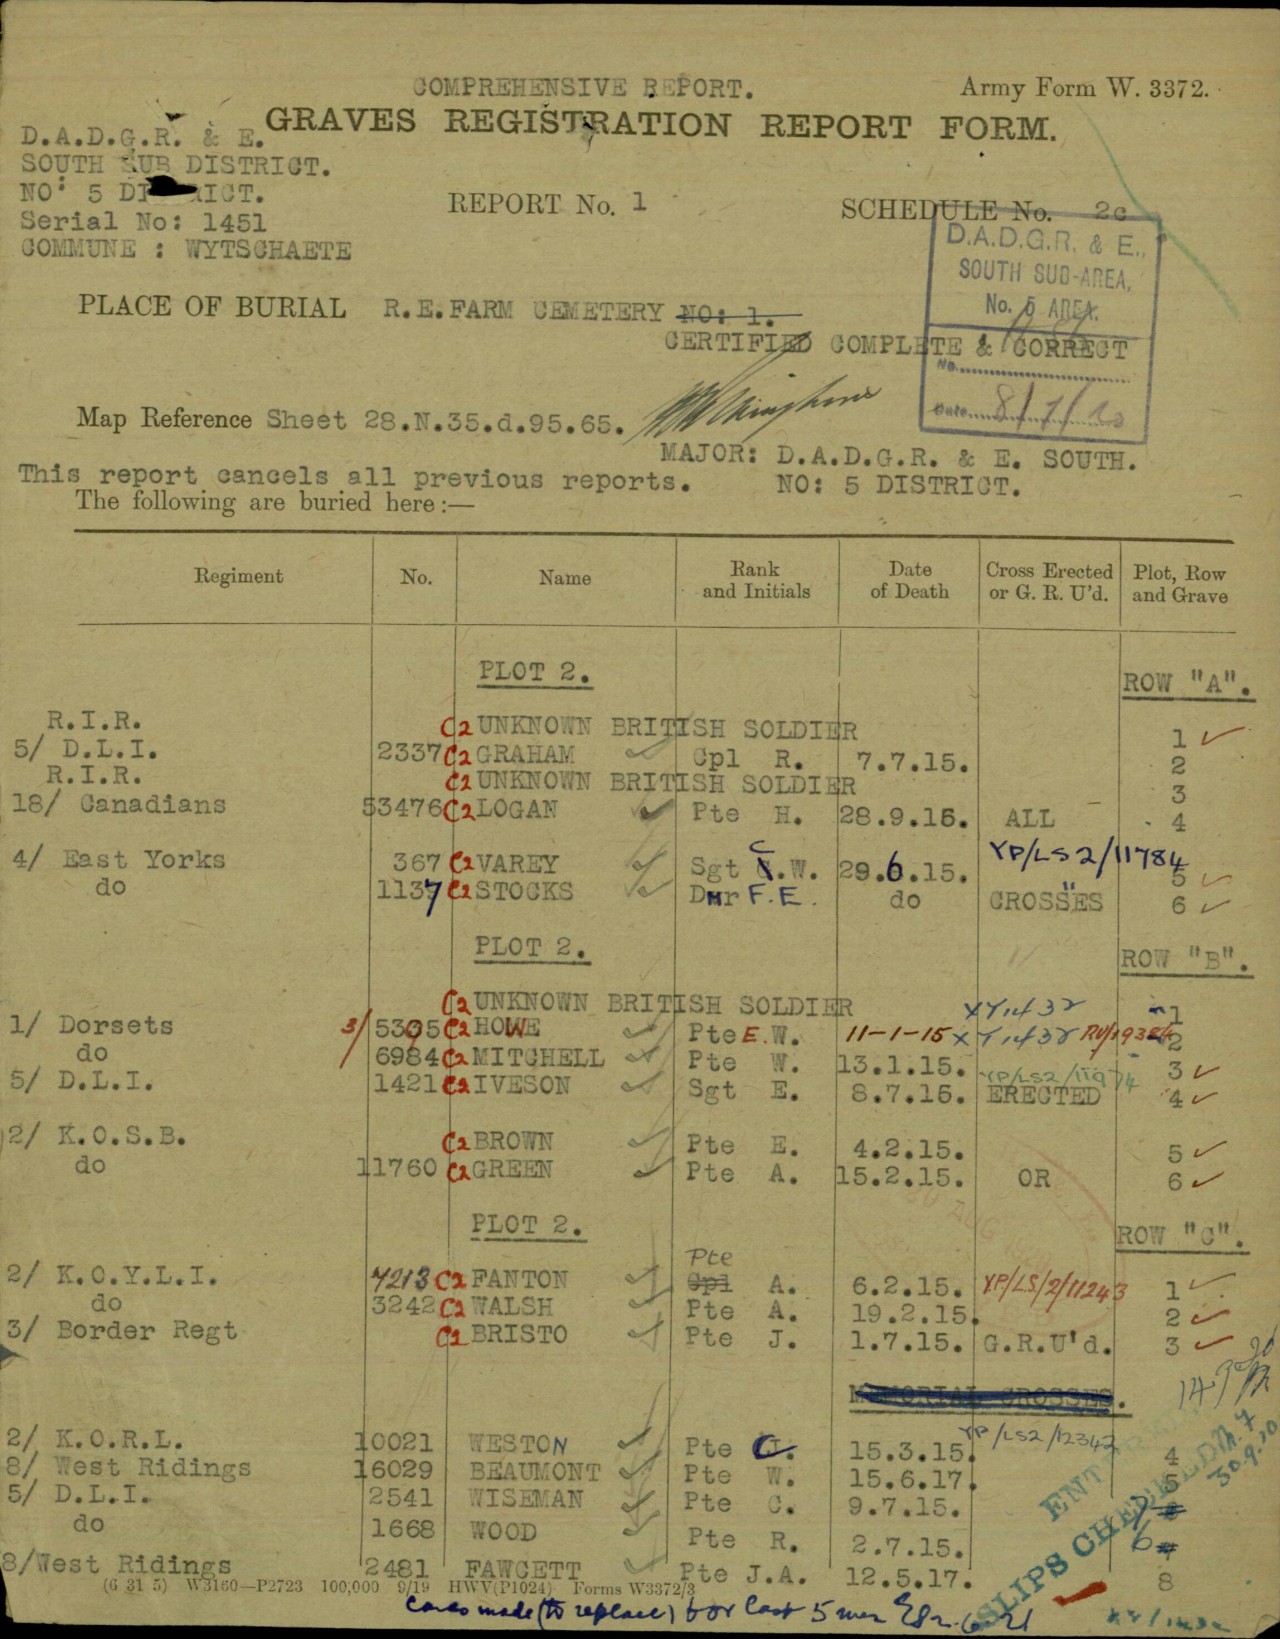 COMPREHENSIVE REPORT.
Army Form W. 3372.
GRAVES REGISTRATION REPORT FORM.
D.A.D.G.R. & E.
SOUTH SUB DISTRICT.
NO: 5 DISTRICT.
Serial No: 1451
COMMUNE : WYTSCHAETE
REPORT No. 1
SCHEDULE No. 2c
D.A.D.G.R. & E.,
SOUTH SUB-AREA,
No. 5 AREA.
No.
Date 8/7/20
PLACE OF BURIAL R.E.FARM CEMETERY NO: 1.
CERTIFIED COMPLETE & CORRECT
Map Reference Sheet 28.N.35.d.95.65.
MAJOR: D.A.D.G.R. & E. SOUTH.
NO: 5 DISTRICT.
This report cancels all previous reports.
The following are buried here:—
Regiment No. Name Rank and Initials Date of Death Cross Erected or G. R. U'd. Plot, Row and Grave
PLOT 2. ROW "A".
R.I.R. C2 UNKNOWN BRITISH SOLDIER 1
5/ D.L.I. 2337 C2 GRAHAM Cpl R. 7.7.15. 2
R.I.R. C2 UNKNOWN BRITISH SOLDIER 3
18/ Canadians 53476 C2 LOGAN Pte H. 28.9.15. ALL 4
4/ East Yorks 367 C2 VAREY Sgt C.W. 29.6.15. YP/LS2/11784 5
do 1137 C2 STOCKS Dmr F.E. do CROSSES " 6
PLOT 2. ROW "B".
C2 UNKNOWN BRITISH SOLDIER 1
1/ Dorsets 3/5395 C2 HOWE Pte E.W. 11-1-15 2
do 6984 C2 MITCHELL Pte W. 13.1.15. 3
5/ D.L.I. 1421 C2 IVESON Sgt E. 8.7.15. YP/LS2/11974 ERECTED 4
2/ K.O.S.B. C2 BROWN Pte E. 4.2.15. 5
do 11760 C2 GREEN Pte A. 15.2.15. OR 6
PLOT 2. ROW "C".
Pte
2/ K.O.Y.L.I. 7213 C2 FANTON Cpl A. 6.2.15. YP/LS/2/11243 1
do 3242 C2 WALSH Pte A. 19.2.15. 2
3/ Border Regt C1 BRISTO Pte J. 1.7.15. G.R.U'd. 3
MEMORIAL CROSSES.
2/ K.O.R.L. 10021 WESTON Pte C. 15.3.15. YP/LS2/12342 4
8/ West Ridings 16029 BEAUMONT Pte W. 15.6.17. 5
5/ D.L.I. 2541 WISEMAN Pte C. 9.7.15. 7
do 1668 WOOD Pte R. 2.7.15. 6
8/West Ridings 2481 FAWCETT Pte J.A. 12.5.17. 8
SLIPS CHECKED
30.9.20
(6 31 5) W3160—P2723 100,000 9/19 HWV(P1024) Forms W3372/3
Cards made (to replace) for last 5 men